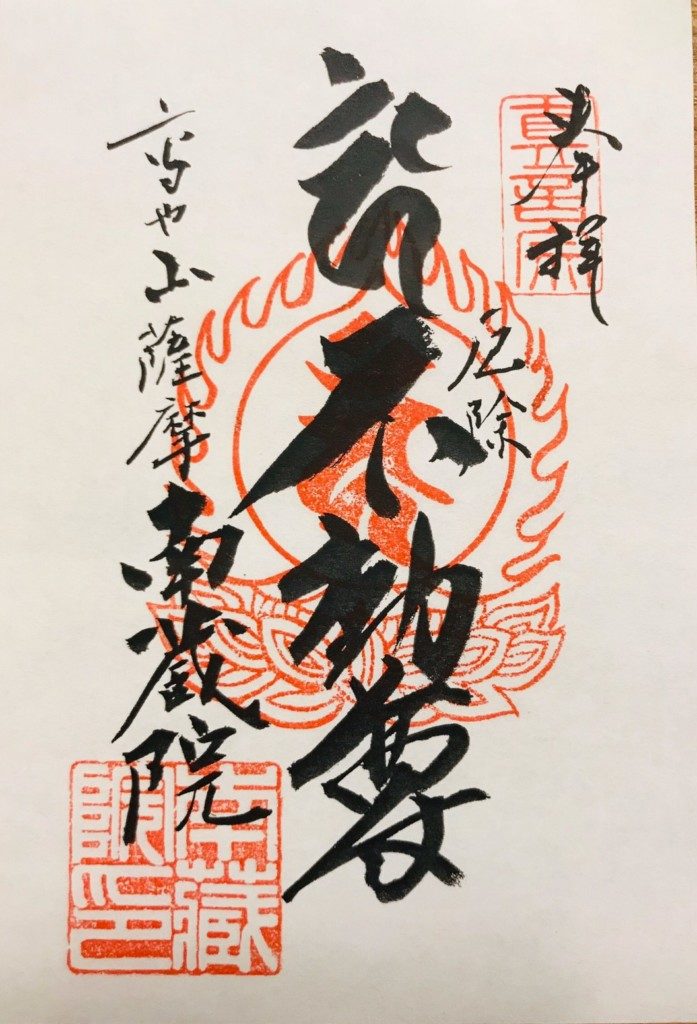 奉拝
真言宗
厄除
不動尊
高野山薩摩南蔵院
南蔵院印